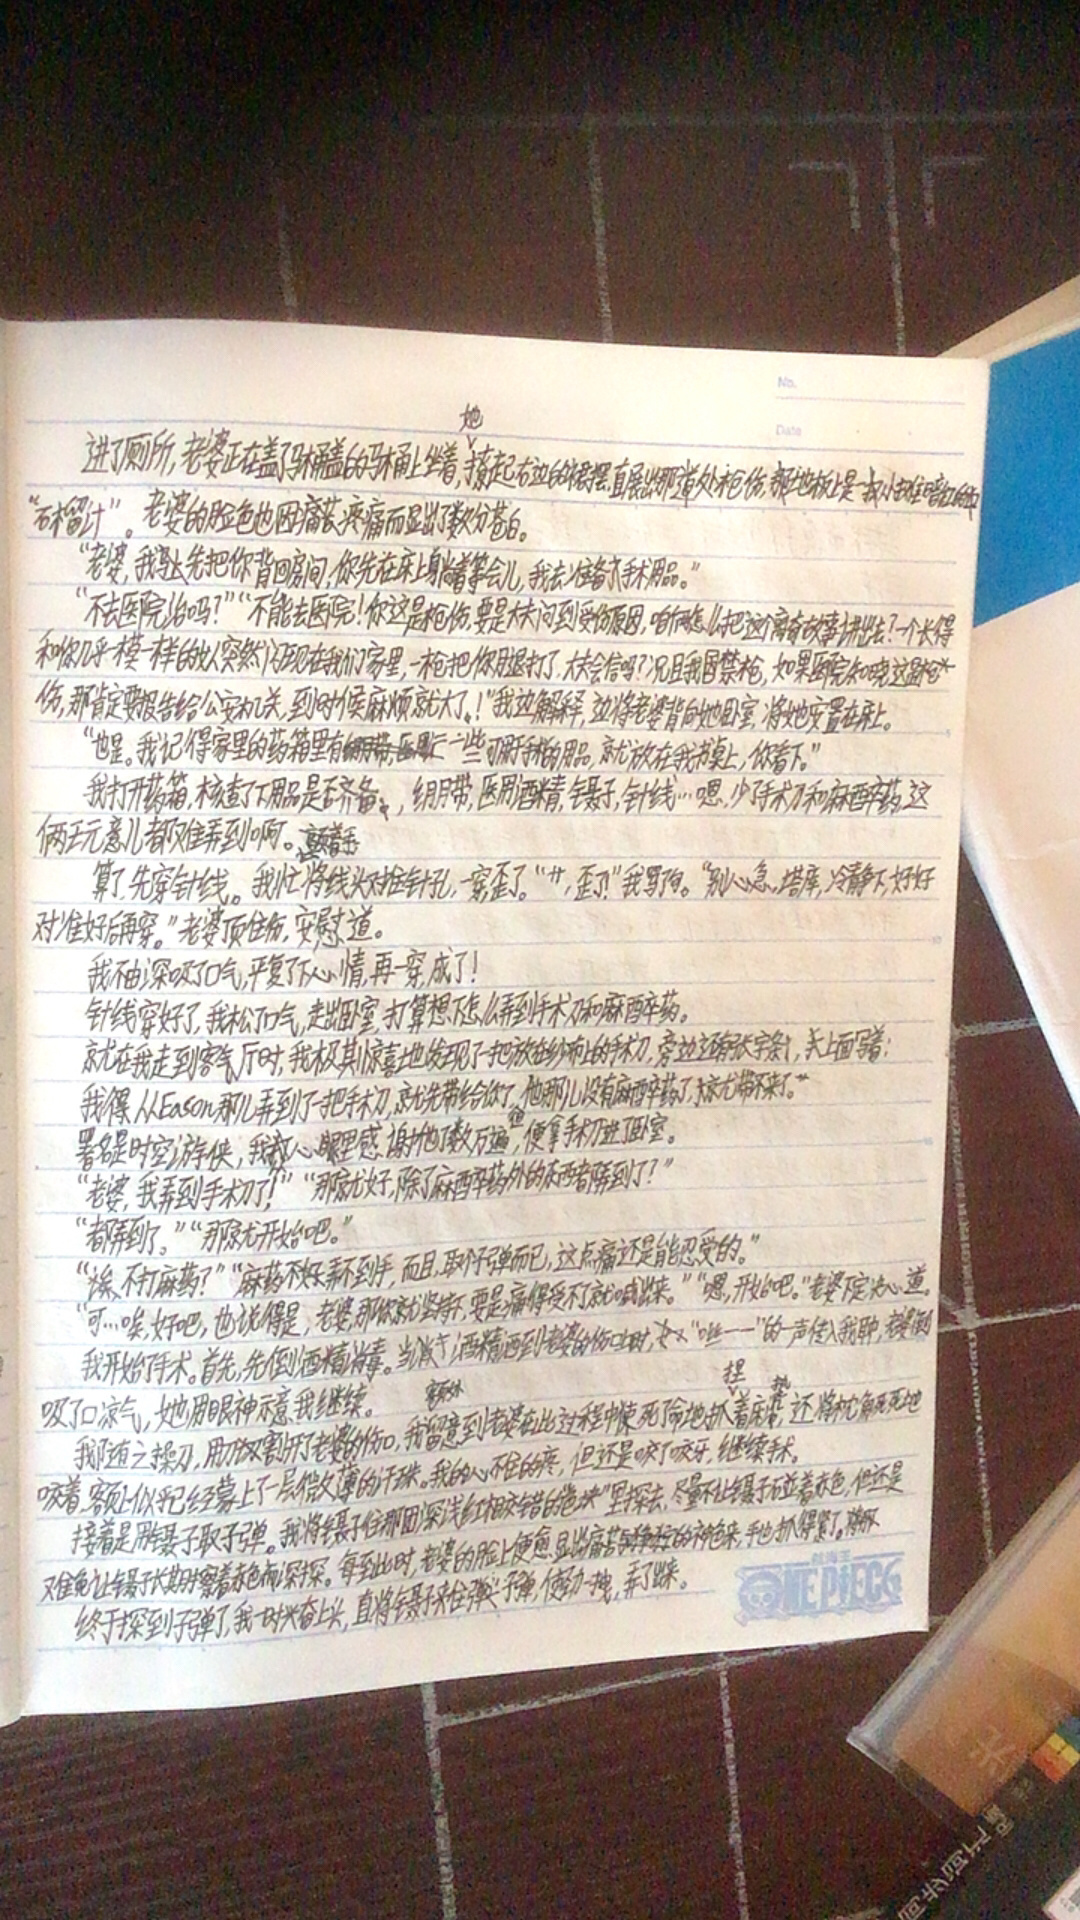 No.
Date
她
进了厕所，老婆正在盖了马桶盖的马桶上坐着，撩起右边的裙摆，直展出那道处枪伤，地板上是一小摊暗红的
“石榴汁”。老婆的脸色也因痛苦、疼痛而显出了数分苍白。
“老婆，我马上先把你背回房间，你先在床上躺着等会儿，我去准备下手术用品。”
“不去医院治吗？”“不能去医院！你这是枪伤，要是大夫问到受伤原因，咱俩怎么把这个离奇故事讲出去？一个长得
和你几乎一模一样的女人突然闪现在我们家里，一枪把你用腿打了，大夫会信吗？况且我国禁枪，如果医院知晓这是枪
伤，那肯定要报告给公安机关，到时候麻烦就大了！”我边解释，边将老婆背向她卧室，将她安置在床上。
“也是。我记得家里的药箱里有一些可用于手术的用品，就放在我书桌上，你看下。”
我打开药箱，核查了下用品是否齐备，绷带，医用酒精，镊子，针线…嗯，少了手术刀和麻醉药，这
俩玩意儿都难弄到啊。
颤着手
算了，先穿针线。我忙将线头对准针孔，一穿，歪了。“艹，歪了！”我骂了句。“别心急，塔库，冷静下，好好
对准好后再穿。”老婆顶住伤，安慰道。
我不由深吸了口气，平复了下心情，再一穿，成了！
针线穿好了，我松了口气，走出卧室，打算想下怎么弄到手术刀和麻醉药。
就在我走到客厅时，我极其惊喜地发现了一把放在纱布上的手术刀，旁边还有张字条，上面写着：
我得从Eason那儿弄到了一把手术刀，就先带给你了，他那儿没有麻醉药了，就带不来了。”
署名是时空游侠，我心里感谢他了数万遍，便拿手术刀进了卧室。
“老婆，我弄到手术刀了！”“那就好，除了麻醉药外的东西都弄到了？”
“都弄到了。”“那就开始吧。”
“诶，不打麻药？”“麻药不好弄到手，而且，取个子弹而已，这点痛还是能忍受的。”
“可…唉，好吧，也说得是，老婆，那你就坚持下，要是痛得受不了就喊出来。”“嗯，开始吧。”老婆下定决心道。
我开始了手术。首先，先倒酒精消毒。当酒精洒到老婆的伤口时，“咝——”的一声传入我耳中，老婆倒
吸了口凉气，她用眼神示意我继续。
额外
捏
我随之操刀，用刀割开了老婆的伤口，我留意到老婆在此过程中死命地抓着床垫，还将枕角死死地
咬着，额上似乎已经蒙上了一层微薄的汗珠。我的心不住的疼，但还是咬了咬牙，继续手术。
接着是用镊子取子弹。我将镊子往那团深浅红相交错的色块里探去，尽量不让镊子碰着赤色，但还是
难免让镊子长期时擦着赤色而深探。每到此时，老婆的脸上便愈显出痛苦的神色来，手也抓得紧了。
终于探到子弹了，我一时兴奋上头，直将镊子夹住弹头子弹，使劲一拽，弄了出来。
航海王
ONE PIECE